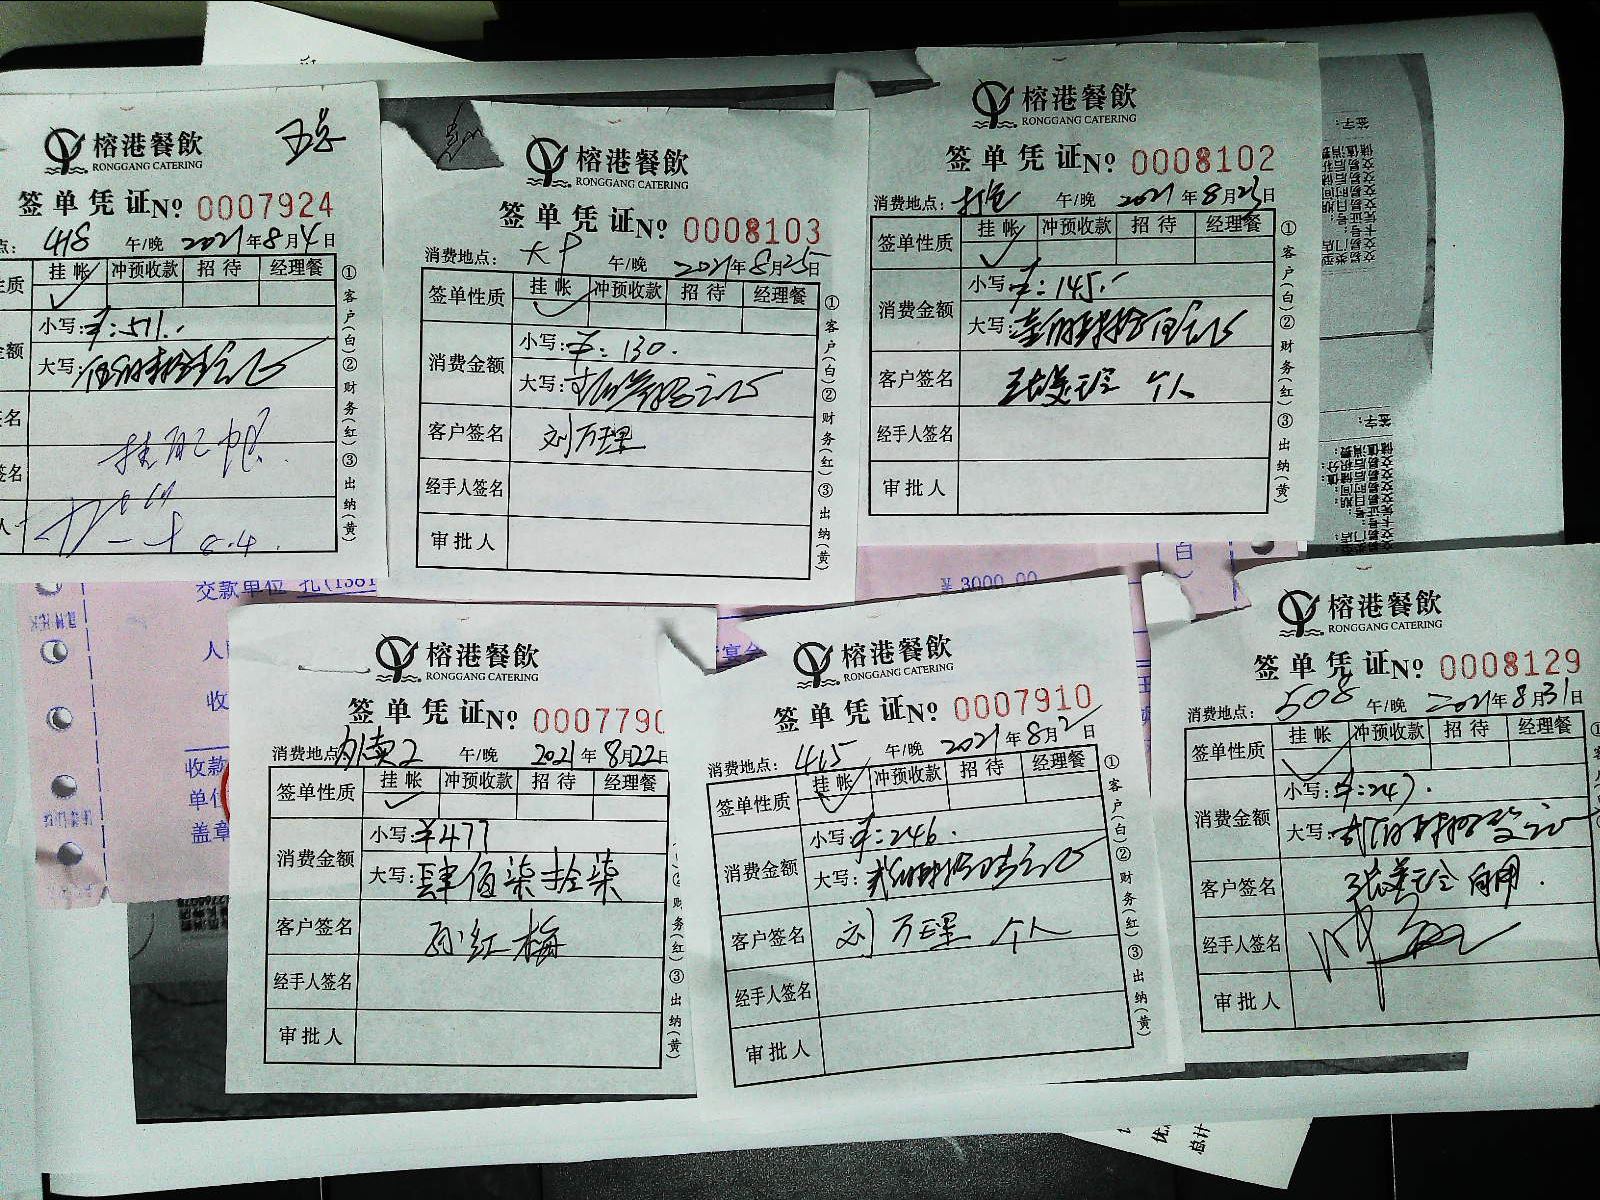 榕港餐飲
RONGGANG CATERING
签单凭证№ 0007924
点: 418 午/晚 2021年8月4日
性质 挂帐 冲预收款 招待 经理餐
小写:¥:571.
金额
大写:伍佰柒拾壹元正
签名
签名
8.4.
①客户(白)②财务(红)③出纳(黄)
榕港餐飲
RONGGANG CATERING
签单凭证№ 0008103
消费地点: 大户 午/晚 2021年8月25日
签单性质 挂帐 冲预收款 招待 经理餐
小写:¥:130.
消费金额
大写:壹佰叁拾元正
客户签名 刘万理
经手人签名
审批人
①客户(白)②财务(红)③出纳(黄)
榕港餐飲
RONGGANG CATERING
签单凭证№ 0008102
消费地点: 打包 午/晚 2021年8月25日
签单性质 挂帐 冲预收款 招待 经理餐
小写:¥:145.
消费金额
大写:壹佰肆拾伍元正
客户签名 个人
经手人签名
审批人
①客户(白)②财务(红)③出纳(黄)
交款单位 孔(1381
¥ 3000.00
收款
单位
盖章
榕港餐飲
RONGGANG CATERING
签单凭证№ 0007790
消费地点: 外卖2 午/晚 2021年8月22日
签单性质 挂帐 冲预收款 招待 经理餐
小写:¥477
消费金额
大写:肆佰柒拾柒
客户签名 孙红梅
经手人签名
审批人
务(红)③出纳(黄)
榕港餐飲
RONGGANG CATERING
签单凭证№ 0007910
消费地点: 415 午/晚 2021年8月2日
签单性质 挂帐 冲预收款 招待 经理餐
小写:¥:246.
消费金额
大写:贰佰肆拾陆元正
客户签名 刘万理 个人
经手人签名
审批人
①客户(白)②财务(红)③出纳(黄)
榕港餐飲
RONGGANG CATERING
签单凭证№ 0008129
消费地点: 508 午/晚 2021年8月31日
签单性质 挂帐 冲预收款 招待 经理餐
小写:¥:247.
消费金额
大写:贰佰肆拾柒元正
客户签名 自用.
经手人签名
审批人
总计